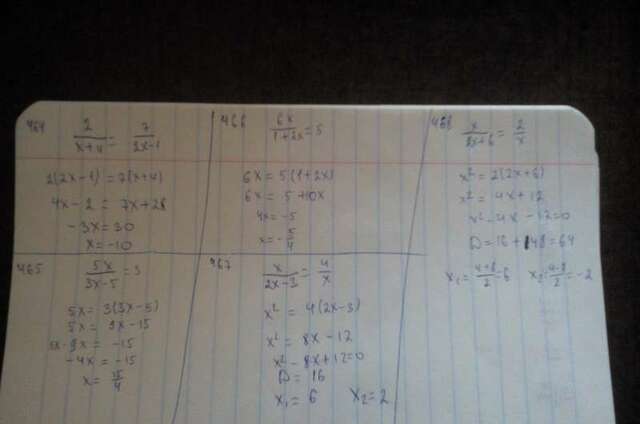 464
2/(x+4) = 7/(2x-1)
2(2x-1) = 7(x+4)
4x-2 = 7x+28
-3x = 30
x = -10
465
5x/(3x-5) = 3
5x = 3(3x-5)
5x = 9x-15
5x-9x = -15
-4x = -15
x = 15/4
466
6x/(1+2x) = 5
6x = 5(1+2x)
6x = 5+10x
4x = -5
x = -5/4
467
x/(2x-3) = 4/x
x² = 4(2x-3)
x² = 8x-12
x²-8x+12=0
D = 16
x₁ = 6 x₂ = 2
468
x/(2x+6) = 2/x
x² = 2(2x+6)
x² = 4x+12
x²-4x-12=0
D = 16+48=64
x₁ = (4+8)/2 = 6 x₂ = (4-8)/2 = -2